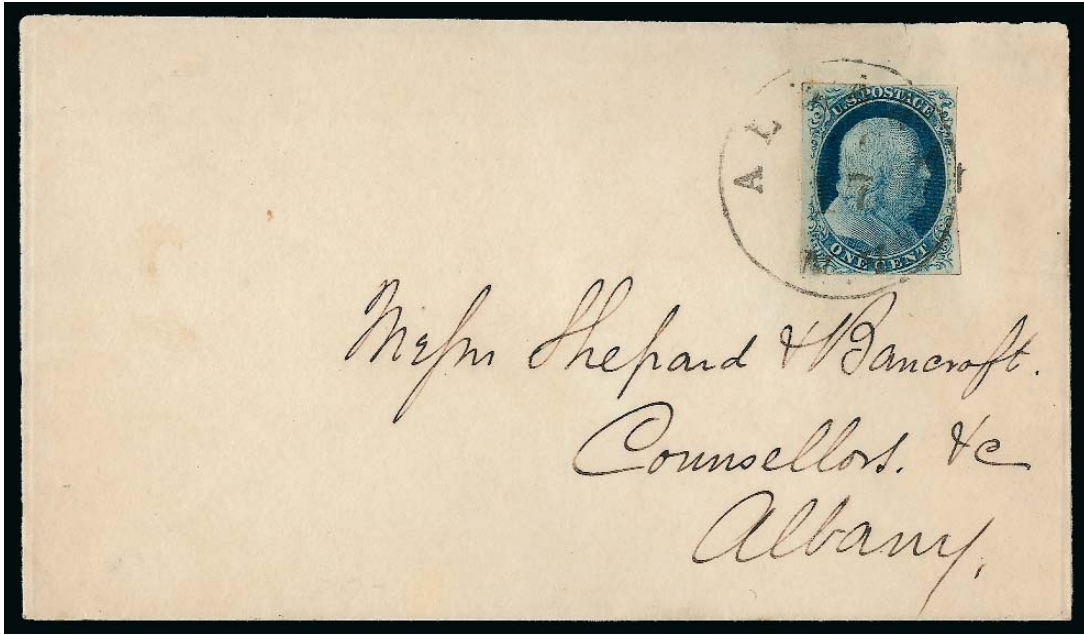 U.S. POSTAGE
ONE CENT
7
Messrs Shepard & Bancroft.
Counsellors. &c
Albany,